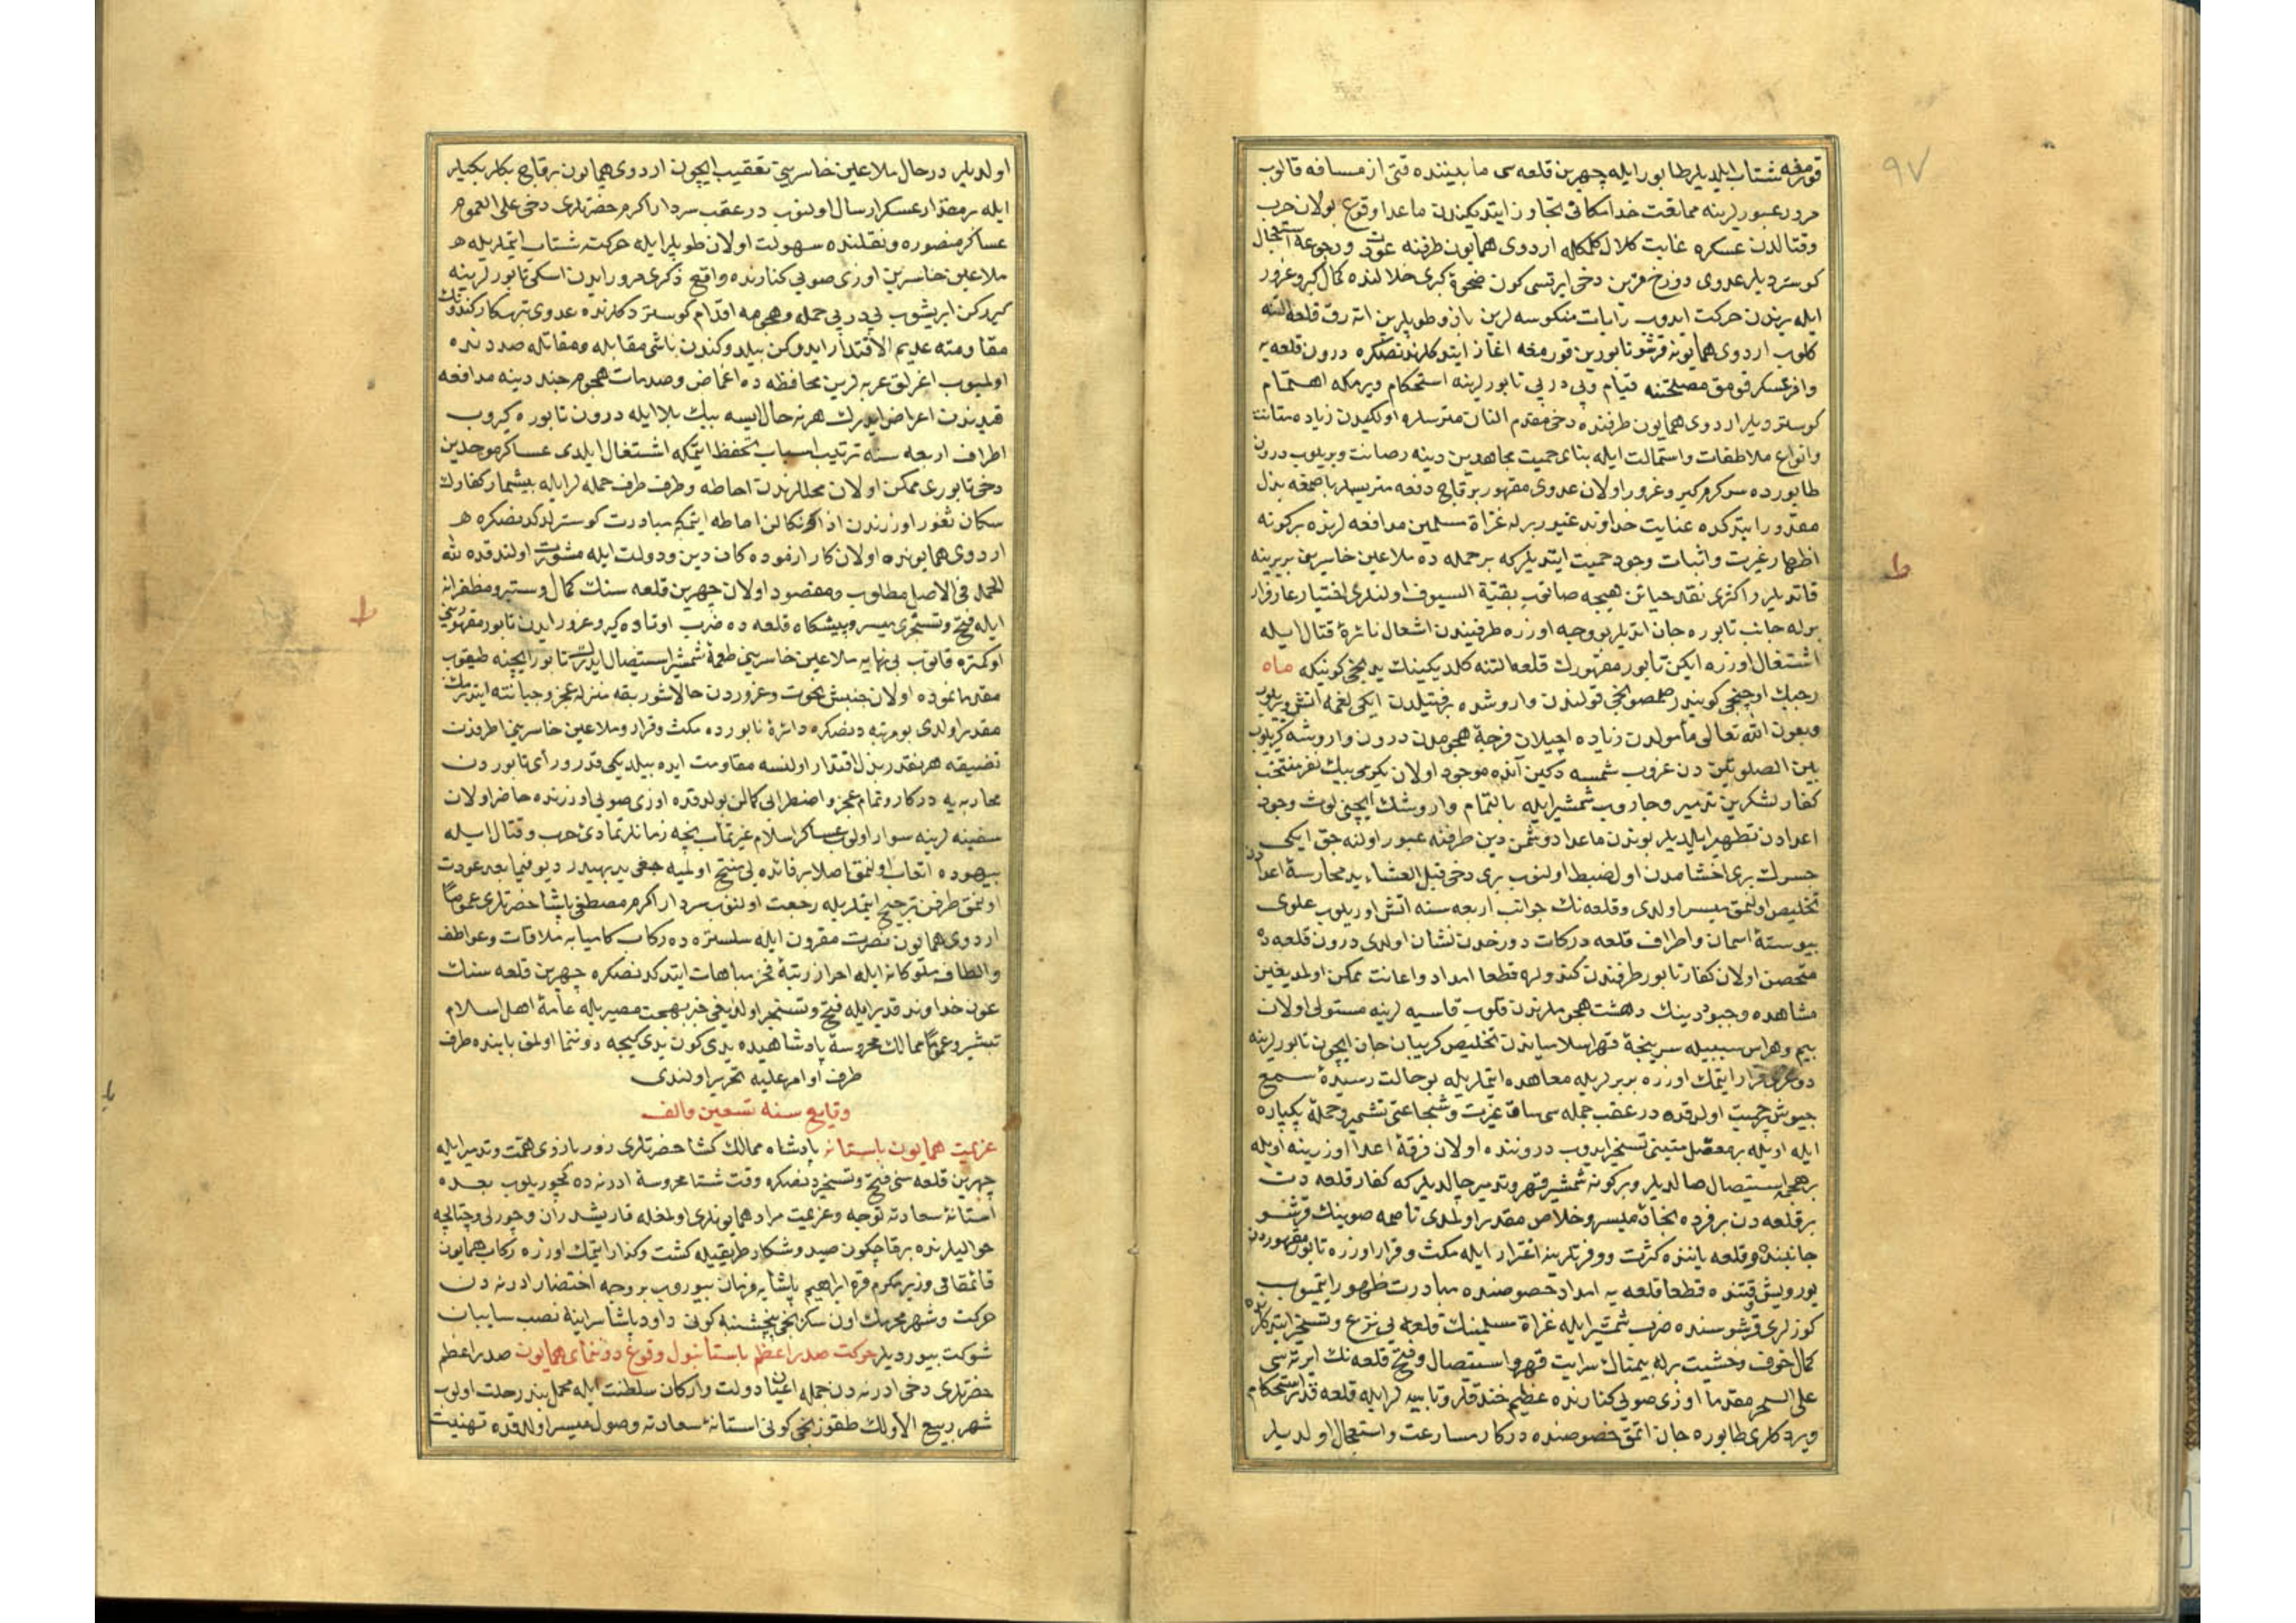 ٩٧
قورمغه شتاب ایلدیلر طابور ایله چهرین قلعه سی مابیننده قتی از مسافه قالوب
مرور عبورلرینه ممانعت خدا مکانی تجاوز ایتدیکندن ماعدا وقوع بولان حرب
وقتالدن عسکره غایت کلال کلمکله اردوی همایون طرفنه عودت ورجوعه استعجال
کوستردیلر عدوی دوزخ مقرین دخی ایرتسی کون ضحوۀ کبری خلالنده کمال کبر وغرور
ایله یرندن حرکت ایدوب رایات منکوسه لرین وطوپلرین قلعه التنه
کلوب اردوی همایونه قرشو تابورین قورمغه اغاز ایتدکلرندنصکره درون قلعه یه
وافر عسکر قومق مصلحتنه قیام وپی در پی تابورلرینه استحکام ویرمکه اهتمام
کوستردیلر اردوی همایون طرفنده دخی مقدم النان مترسلره اولکیدن زیاده متانت
وانواع ملاطفات واستمالت ایله بنای حمیت مجاهدین دینه رصانت ویریلوب درون
طابورده سرکرم کبر وغرور اولان عدوی مقهور برقاچ دفعه متریسلر باصمغه بذل
مقدور ایتدکده عنایت خداوند غیور برله غزاة مسلمین مدافعه لرنده برکونه
اظهار غیرت واثبات وجود حمیت ایتدیلر که بر حمله ده ملاعین خاسرینی بربرینه
قاتدیلر اکثری نقد حیاتن هیچه صاتوب بقیة السیوف اولنلری اختیار عار فرار
برله جانب تابوره جان اتدیلر بو وجه اوزره طرفیندن اشعال نائرۀ قتال ایله
اشتغال اوزره ایکن تابور مقهورک قلعه التنه کلدیکینک یدنجی کونیکه ماه
رجبک اوچنجی کونیدر صمصونجی قولندن واروشده برفتیلدن ایکی لغمه اتش ویریلوب
وبعون الله تعالی مأمولدن زیاده اچیلان فرجۀ هجومدن درون واروشه کیریلوب
بین الصلوتین دن غروب شمسه دکین آنده موجود اولان یکرمی بیک نفر منتخب
کفار لشکرین تدمیر وجاروب شمشیر ایله بالتمام واروشک ایچنی لوث وجود
اعدادن تطهیر ایلدیلر بوندن ماعدا دوشمن دین طرفنه عبور اولنه جق ایکی
جسرک بری اخشامدن اول ضبط اولنوب بری دخی قبل العشاء ید محارسۀ اعدادن
تخلیص اولنمق میسر اولدی وقلعه نک جوانب اربعه سنه اتش اوریلوب علوی
پیوستۀ اسمان واطراف قلعه درکات دوزخدن نشان اولدی درون قلعه ده
متحصن اولان کفار تابور طرفندن کندولره قطعا امداد واعانت ممکن اولمدیغین
مشاهده وجیود دینک دهشت هجوملرندن قلوب قاسیه لرینه مستولی اولان
بیم وهراس سببیله سرپنجۀ قهر اسلامیاندن تخلیص کریبان جان ایچون تابورلرینه
دوغری فرار ایتمک اوزره بربرلریله معاهده ایتملریله بو حالت رسیدۀ سمع
جیوش حمیت اولدقده در عقب جمله سی ساق عزیمت وشجاعتی تشمیر وحملۀ یکپاره
ایله اویله بر معقل متینی تسخیر ایدوب دروننده اولان فرقۀ اعدا اوزرینه اویله
بر هجمۀ استیصال صالدیلر وبرکونه شمشیر قهر وتدمیر چالدیلر که کفار قلعه دن
بر قلعه دن بر فرده نجات میسر وخلاص مقدر اولمدی تاصمه صوینک قرشو
جانبنده وقلعه یاننده کثرت ووفرتلرینه اغترار ایله مکث وقرار اوزره تابور مقهوردن
یورویش وقتنده قطعا قلعه یه امداد خصوصنده مبادرت ظهور ایتمیوب
کوزلری قرشوسنده ضرب شمشیر ایله غزاة مسلمینک قلعه یی نزع وتسخیر ایتدکلرنده
کمال خوف وخشیت برله بیمتال سرایت قهر واستیصال وفتح قلعه نک ایرته سی
علی السحر مقدما اوزی صویی کنارنده عظیم خندقلر وتابیه لر ایله قلعه قدر استحکام
ویردکلری طابوره جان اتمق خصوصنده درکار مسارعت واستعجال اولدیلر
اولدیلر درحال ملاعین خاسرینی تعقیب ایچون اردوی همایون برقاچ بکلربکیلر
ایله بر مقدار عسکر ارسال اولنوب در عقب سردار اکرم حضرتلری دخی علی العموم
عساکر منصوره ونقلنده سهولت اولان طوپلر ایله حرکت شتاب ایتملریله
ملاعین خاسرین اوزی صویی کنارنده واقع ذکری مرور ایدن اسکی تابورلرینه
کیررکن ایریشوب پی در پی حمله وهجومه اقدام کوستردکلرنده عدوی تبهکار کندونک
مقاومته عدیم الاقتدار ایدوکن بیلدوکندن ناشی مقابله ومقاتله صددنده
اولمیوب اغرلق عربه لرین محافظه ده اغماض وصدمات هجوم جند دینه مدافعه
قیدندن اعراض ایدرک هرنه حال ایسه بیک بلا ایله درون تابوره کیروب
اطراف اربعه سنه ترتیب اسباب تحفظ ایتمکه اشتغال ایلدی عساکر موحدین
دخی تابوری ممکن اولان محللرندن احاطه وطرف طرف حمله لر ایله بیشمار کفارک
سکان ثغور اوزرندن احاطه ایتمکه مبادرت کوستردکدنصکره
اردوی همایونده اولان کار ازموده کان دین ودولت ایله مشورت اولندقده لله
الحمد فی الاصل مطلوب ومقصود اولان چهرین قلعه سنک کمال مظفرانه
ایله فتح وتسخیری میسر وپیشکاه قلعه ده ضرب اوتاد کبر وغرور ایدن تابور مقهورینی
اوکمزه قاتوب بی نهایه ملاعین خاسرینی طعمۀ شمشیر استیصال ایدرک تابور ایچنه طیقوب
مقدما نموده اولان جنبش نخوت وغروردن حالا شو ربقه منزله عجز وجبانته ایندرمک
مقدر اولدی بو مرتبه دنصکره دائرۀ تابورده مکث وقرار وملاعین خاسرینی اطرافدن
تضییقه هرنقدر بذل اقتدار اولنسه مقاومت ایده بیلدیکی قدر ورای تابوردن
محاربه یه درکار وتمام عجز واضطرابی کمالن بولدقده اوزی صویی اوزرنده حاضر اولان
سفینه لرینه سوار اولوب عساکر اسلام غیرتمآب نجه زمانلر تمادئ حرب وقتال ایله
بیهوده اتعاب اولنمق اصلا بر فائده یی منتج اولمیه جغی بدیهیدر دیو فیما بعد عودت
اولنمق طرفن ترجیح ایتملریله رجعت اولنوب سردار اکرم مصطفی پاشا حضرتلری عموما
اردوی همایون نصرت مقرون ایله سلستره ده رکاب کامیابه ملاقات وعواطف
والطاف ملوکانه ایله احراز رتبۀ فخر مباهات ایتدکدنصکره چهرین قلعه سنک
عون خداوند قدیر ایله فتح وتسخیر اولندیغی خبر بهجت مصیریله عامۀ اهل اسلام
تبشیر وعموما ممالک محروسۀ پادشاهیده یدی کون یدی کیجه دوننما اولنمق بابنده طرف
طرف اوامر علیه تحریر اولندی
وقایع سنه تسعین والف
عزیمت همایون باستانه پادشاه ممالک کشا حضرتلری زور بازوی همت وتدبیر ایله
چهرین قلعه سنی فتح وتسخیردنصکره وقت شتا محروسۀ ادرنه ده کچوریلوب بعده
استانۀ سعادته توجه وعزیمت مراد همایونلری اولمغله قارشدران وچورلی وچتالجه
حوالیلرنده برقاچ کون صید وشکار طریقیله کشت وکذار ایتمک اوزره رکاب همایون
قائمقامی وزیر مکرم قره ابراهیم پاشایه فرمان بیوروب بر وجه اختصار ادرنه دن
حرکت وشهر محرمک اون سکزنجی پنجشنبه کونی داود پاشا سراینه نصب سایبان
شوکت بیوردیلر حرکت صدر اعظم باستانبول وقوع دوننمای همایون صدر اعظم
حضرتلری دخی ادرنه دن جمله اعیان دولت وارکان سلطنت ایله محمل بند رحلت اولوب
شهر ربیع الاولک طقوزنجی کونی استانۀ سعادته وصول میسر اولدقده تهنیت